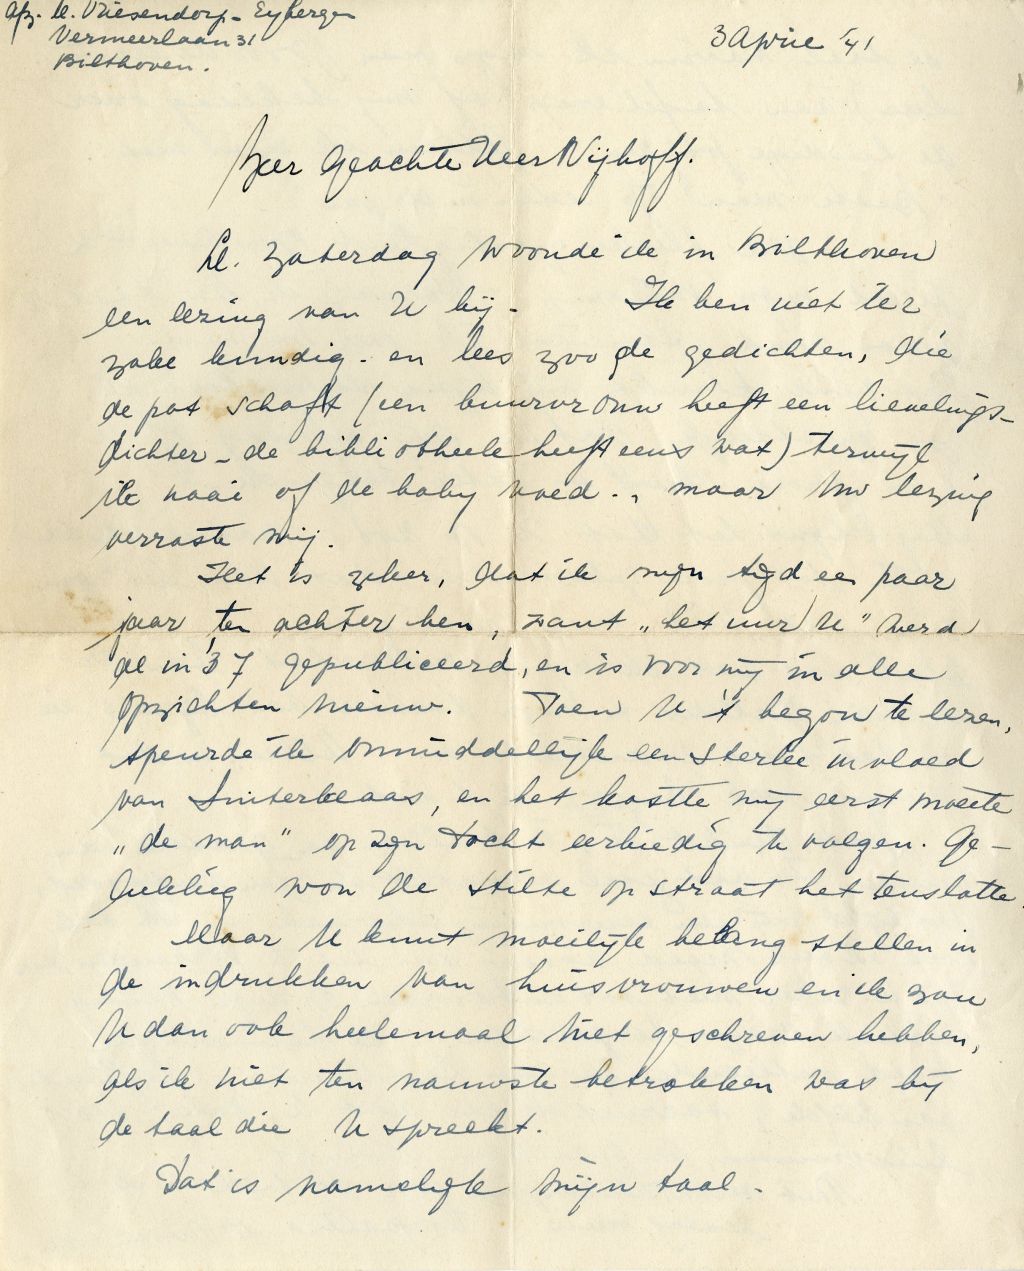 Afz. U. Vriesendorp - Eybergen
Vermeerlaan 31
Bilthoven.
3 April '41
Zeer Geachte Heer Nijhoff.
Ll. Zaterdag woonde ik in Bilthoven
een lezing van U bij. Ik ben niet ter
zake kundig - en lees zoo de gedichten, die
de pot schaft (een buurvrouw heeft een lievelings-
dichter - de bibliotheek heeft eens wat) terwijl
ik naai of de baby voed., maar Uw lezing
verraste mij.
Het is zeker, dat ik mijn tijd een paar
jaar ten achter ben, want „het uur U" werd
al in '37 gepubliceerd, en is voor mij in alle
opzichten nieuw. Toen U 't begon te lezen,
speurde ik onmiddellijk een sterke invloed
van Sinterklaas, en het kostte mij eerst moeite
„de man" op zijn tocht eerbiedig te volgen. Ge-
lukkig won de stilte op straat het tenslotte.
Maar U kunt moeilijk belang stellen in
de indrukken van huisvrouwen en ik zou
U dan ook heelemaal niet geschreven hebben,
als ik niet ten nauwste betrokken was bij
de taal die U spreekt.
Dat is namelijk mijn taal.